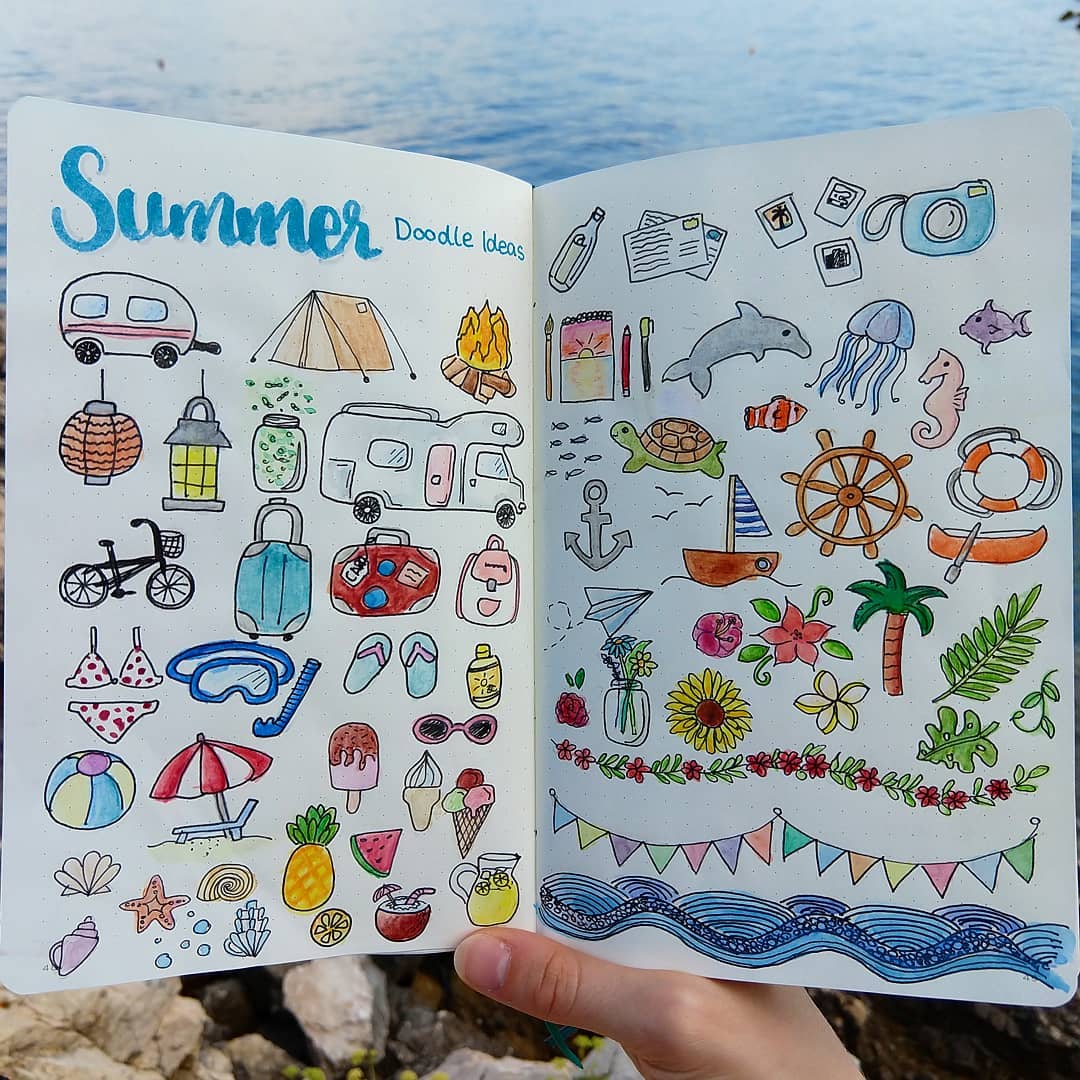 Summer
Doodle Ideas